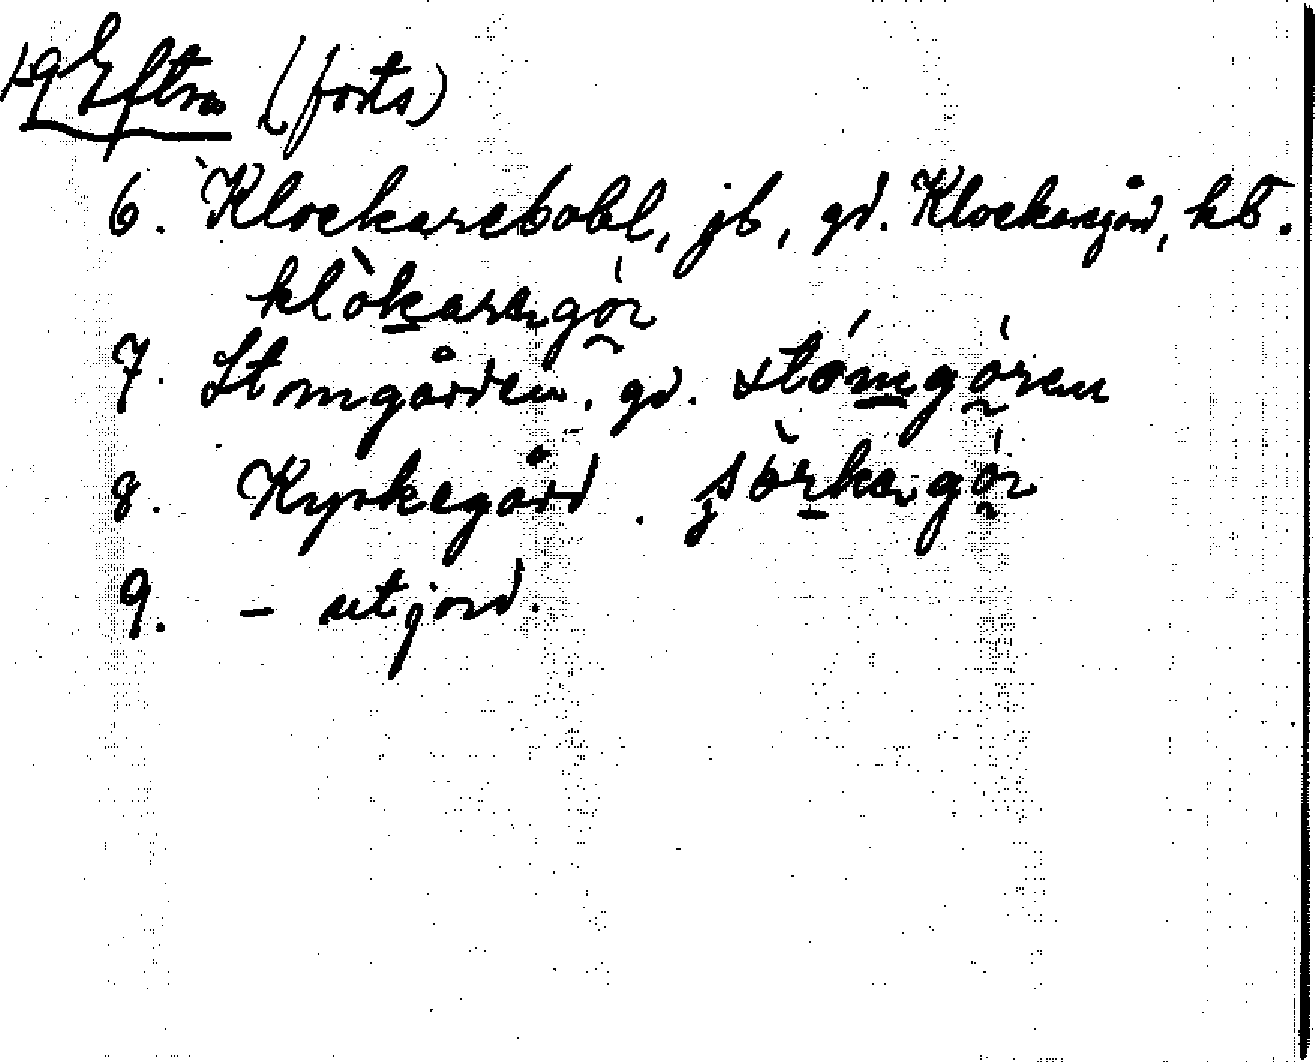 19 Eftra (forts)
6. Klockarebobl, jb, gd. Klockaregård, kb.
klòkaregór
7. Stomgården, gd. stómgóren
8. Kyrkegård. sòrkegór
9. – utjord.